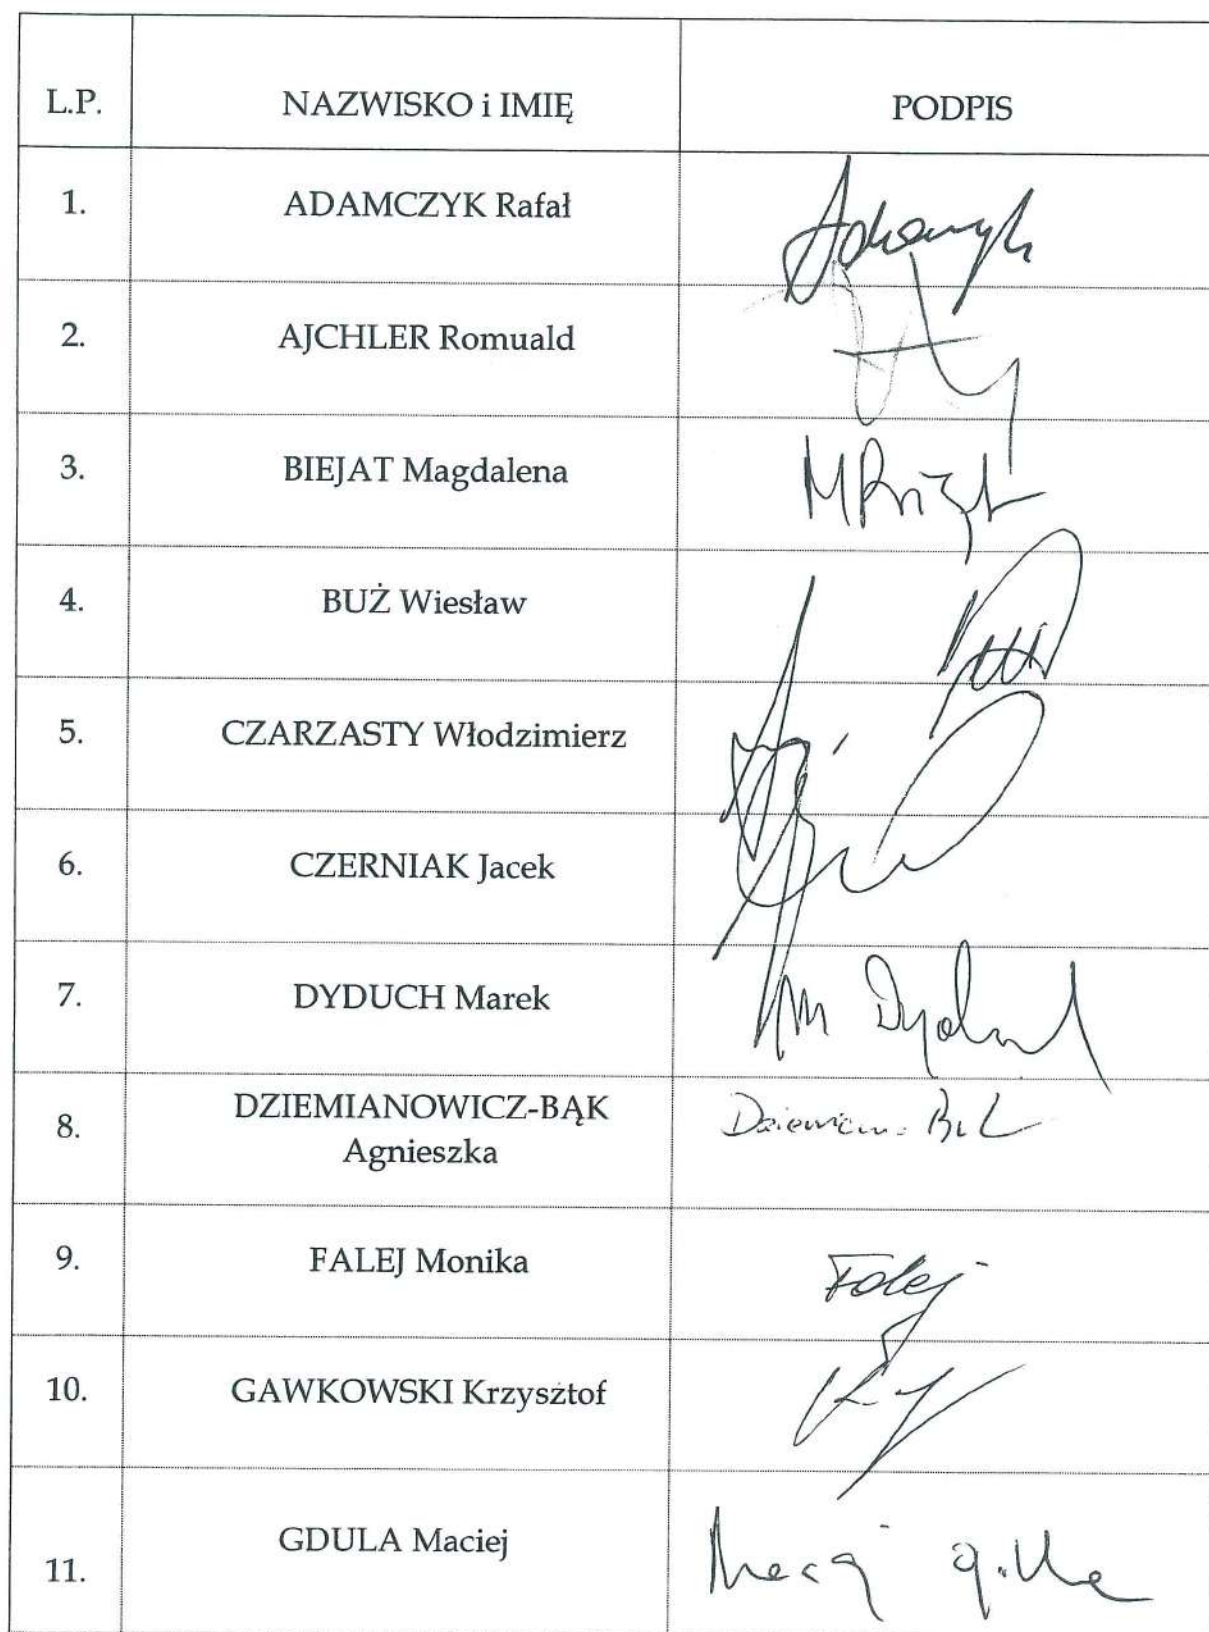 L.P. NAZWISKO i IMIĘ PODPIS
1. ADAMCZYK Rafał Adamczyk
2. AJCHLER Romuald
3. BIEJAT Magdalena
4. BUŻ Wiesław
5. CZARZASTY Włodzimierz
6. CZERNIAK Jacek
7. DYDUCH Marek M Dyduch
8. DZIEMIANOWICZ-BĄK
Agnieszka
9. FALEJ Monika Falej
10. GAWKOWSKI Krzysztof
11. GDULA Maciej Maciej Gdula